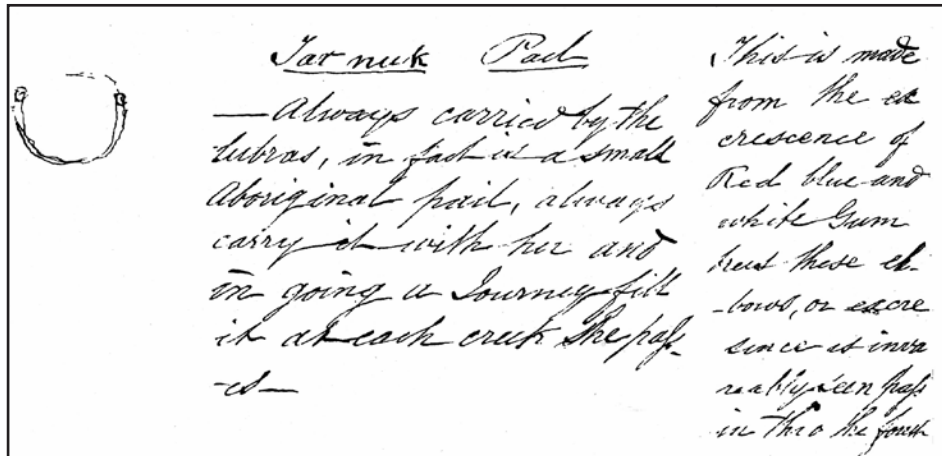 Tarnuk Pail
—Always carried by the
lubras, in fact is a small
Aboriginal pail, always
carry it with her and
in going a Journey fill
it at each creek She pass-
-es—
This is made
from the ex
crescence of
Red blue and
white Gum
trees these el-
-bows, or excre
since is inva
reably seen pass
in thro the forest